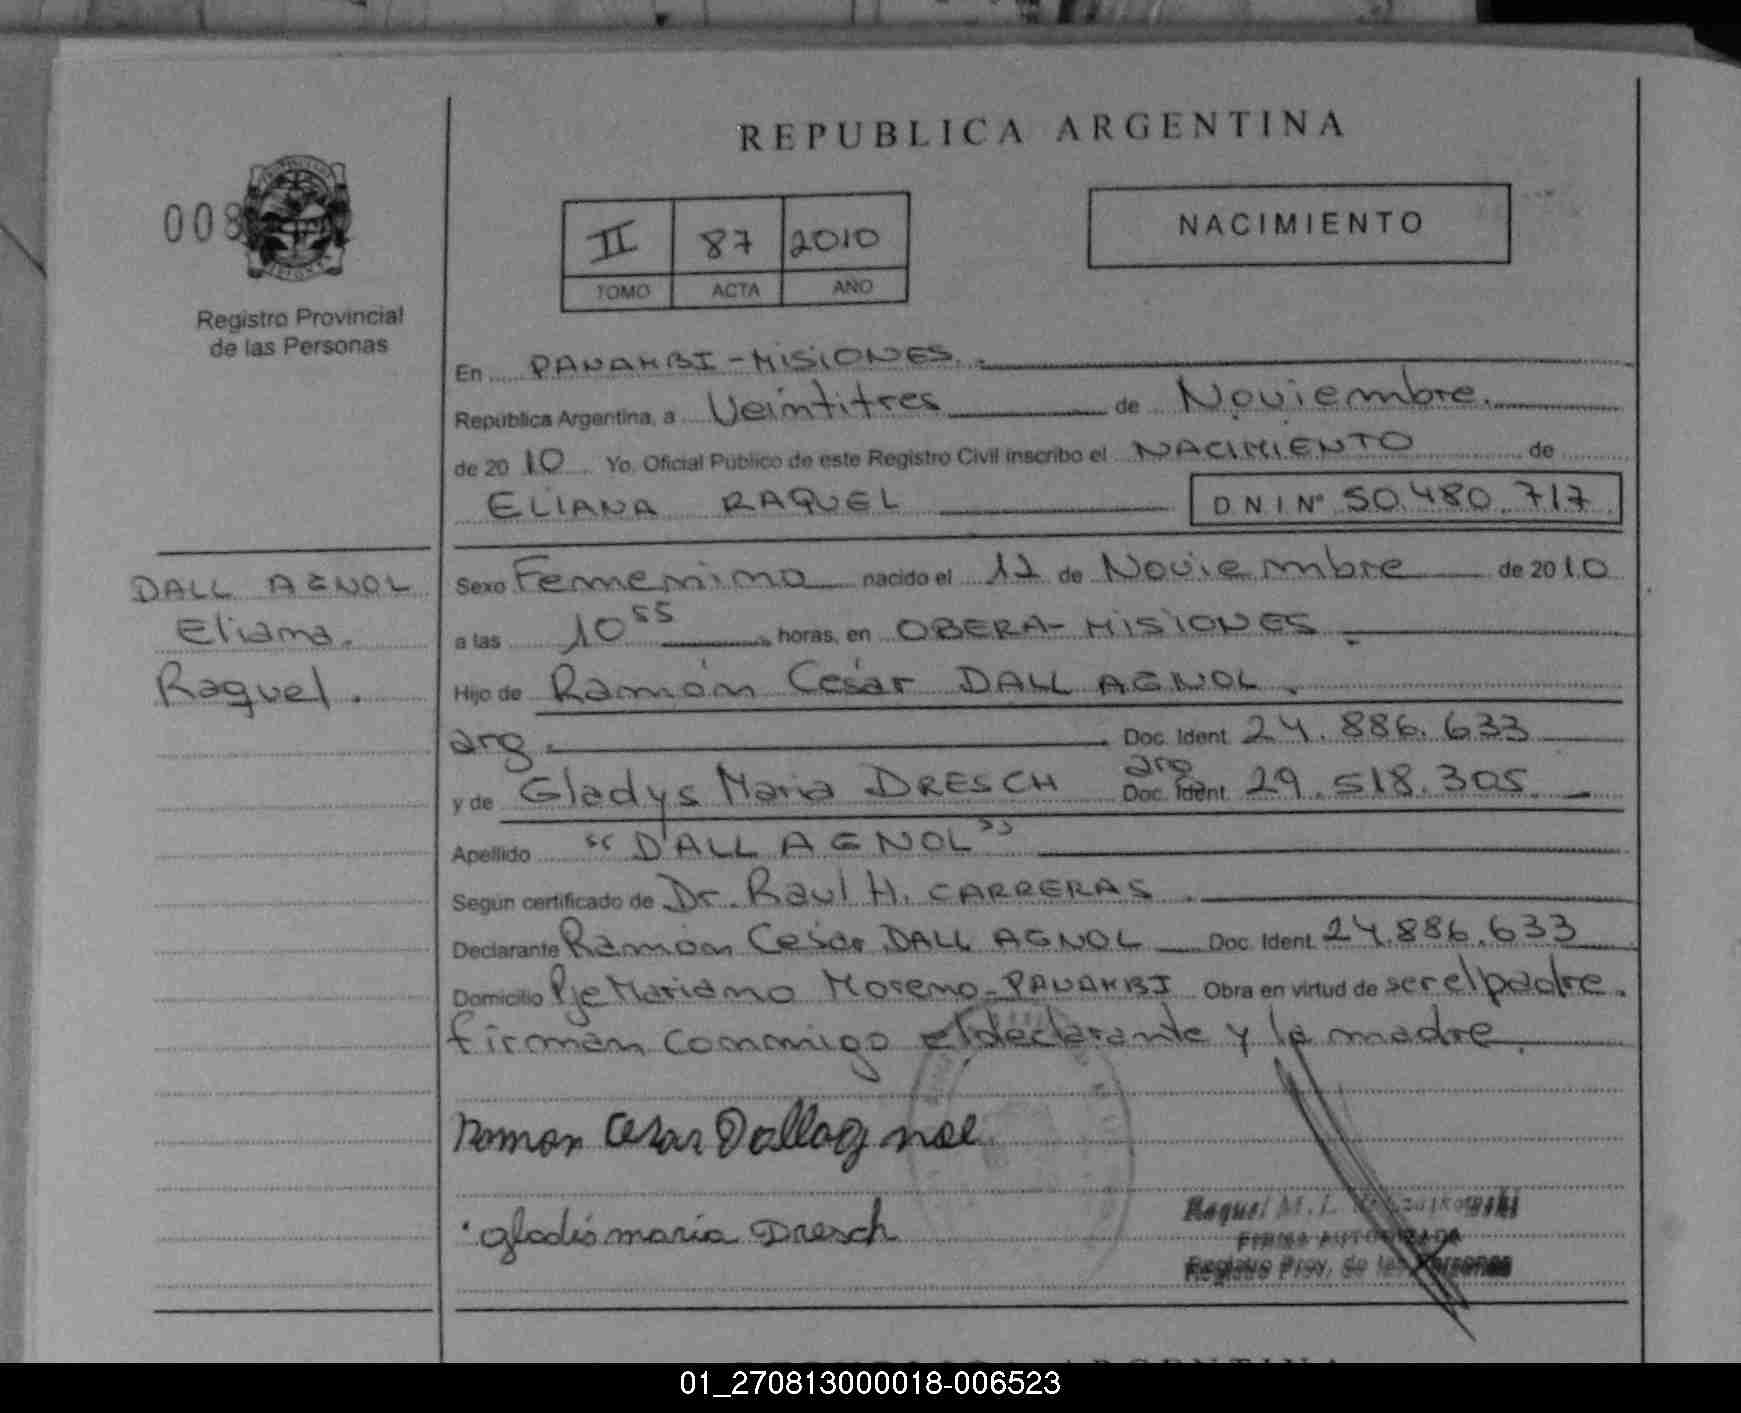 REPUBLICA ARGENTINA
008
NACIMIENTO
II 87 2010
TOMO ACTA AÑO
Registro Provincial
de las Personas
En PANAMBI - MISIONES.
República Argentina, a Veintitres de Noviembre.
de 20 10 Yo, Oficial Público de este Registro Civil inscribo el NACIMIENTO de
ELIANA RAQUEL D N I Nº 50.480.717
DALL AGNOL
Eliana.
Raquel.
Sexo Femenino nacido el 12 de Noviembre de 20 10
a las 10 55 horas, en OBERA - MISIONES.
Hijo de Ramón César DALL AGNOL.
arg. Doc. Ident. 24.886.633
y de Gladys Maria DRESCH arg Doc. Ident. 29.518.305.
Apellido "D'ALL AGNOL"
Según certificado de Dr. Raul H. CARRERAS.
Declarante Ramón Cesar DALL AGNOL Doc. Ident. 24.886.633
Domicilio Pje Mariano Moreno - PANAMBI Obra en virtud de ser el padre.
firman conmigo el declarante y la madre.
Ramon Cesar Dallagnol
gladis maria Dresch
Raquel M. L.
FIRMA AUTORIZADA
Registro Prov. de las Personas
01_270813000018-006523